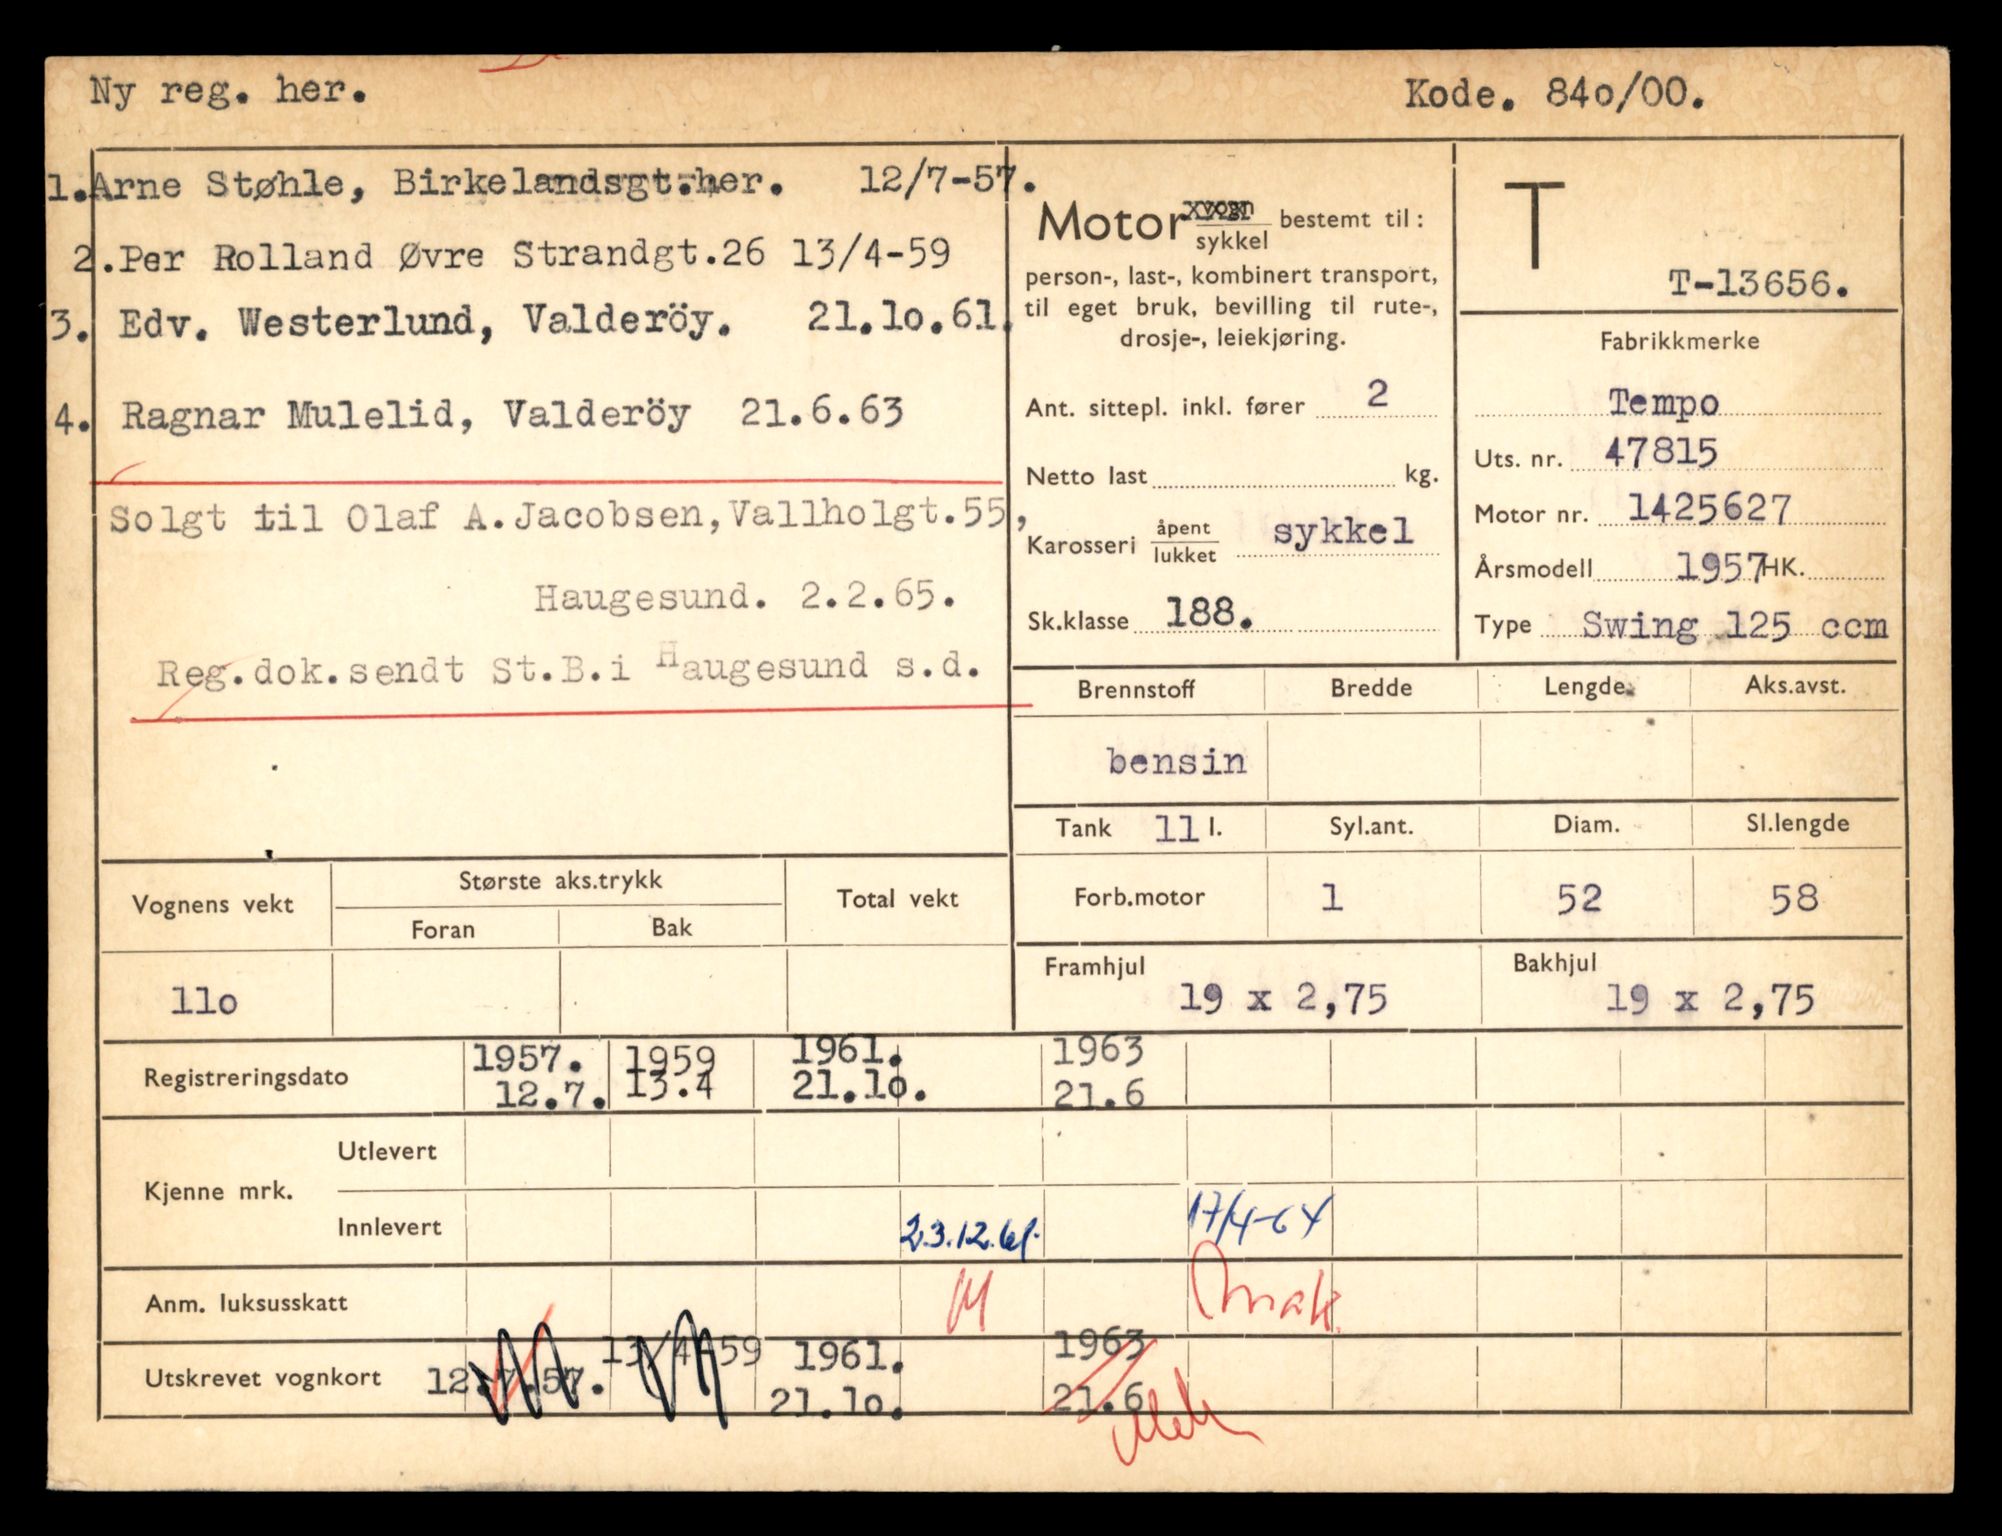 Ny reg. her.
Kode. 84o/00.
1. Arne Støhle, Birkelandsgt.her. 12/7-57.
2. Per Rolland Øvre Strandgt.26 13/4-59
3. Edv. Westerlund, Valderöy. 21.1o.61.
4. Ragnar Mulelid, Valderöy 21.6.63
Solgt til Olaf A.Jacobsen,Vallholgt.55,
Haugesund. 2.2.65.
Reg.dok.sendt St.B.i Haugesund s.d.
Motor vogn sykkel bestemt til:
person-, last-, kombinert transport,
til eget bruk, bevilling til rute-,
drosje-, leiekjøring.
Ant. sittepl. inkl. fører 2
Netto last kg.
Karosseri åpent lukket sykkel
Sk.klasse 188.
T
T-13656.
Fabrikkmerke
Tempo
Uts. nr. 47815
Motor nr. 1425627
Årsmodell 1957 HK.
Type Swing 125 ccm
Brennstoff Bredde Lengde Aks.avst.
bensin
Tank 11 l. Syl.ant. Diam. Sl.lengde
Forb.motor 1 52 58
Framhjul Bakhjul
19 x 2,75 19 x 2,75
Vognens vekt Største aks.trykk Total vekt
Foran Bak
11o
Registreringsdato 1957. 1959 1961. 1963
12.7. 13.4 21.1o. 21.6
Kjenne mrk.
Utlevert
Innlevert 23.12.61. 17/4-64
Anm. luksusskatt
Utskrevet vognkort 12.7.57. 13/4-59 1961. 1963
21.1o. 21.6